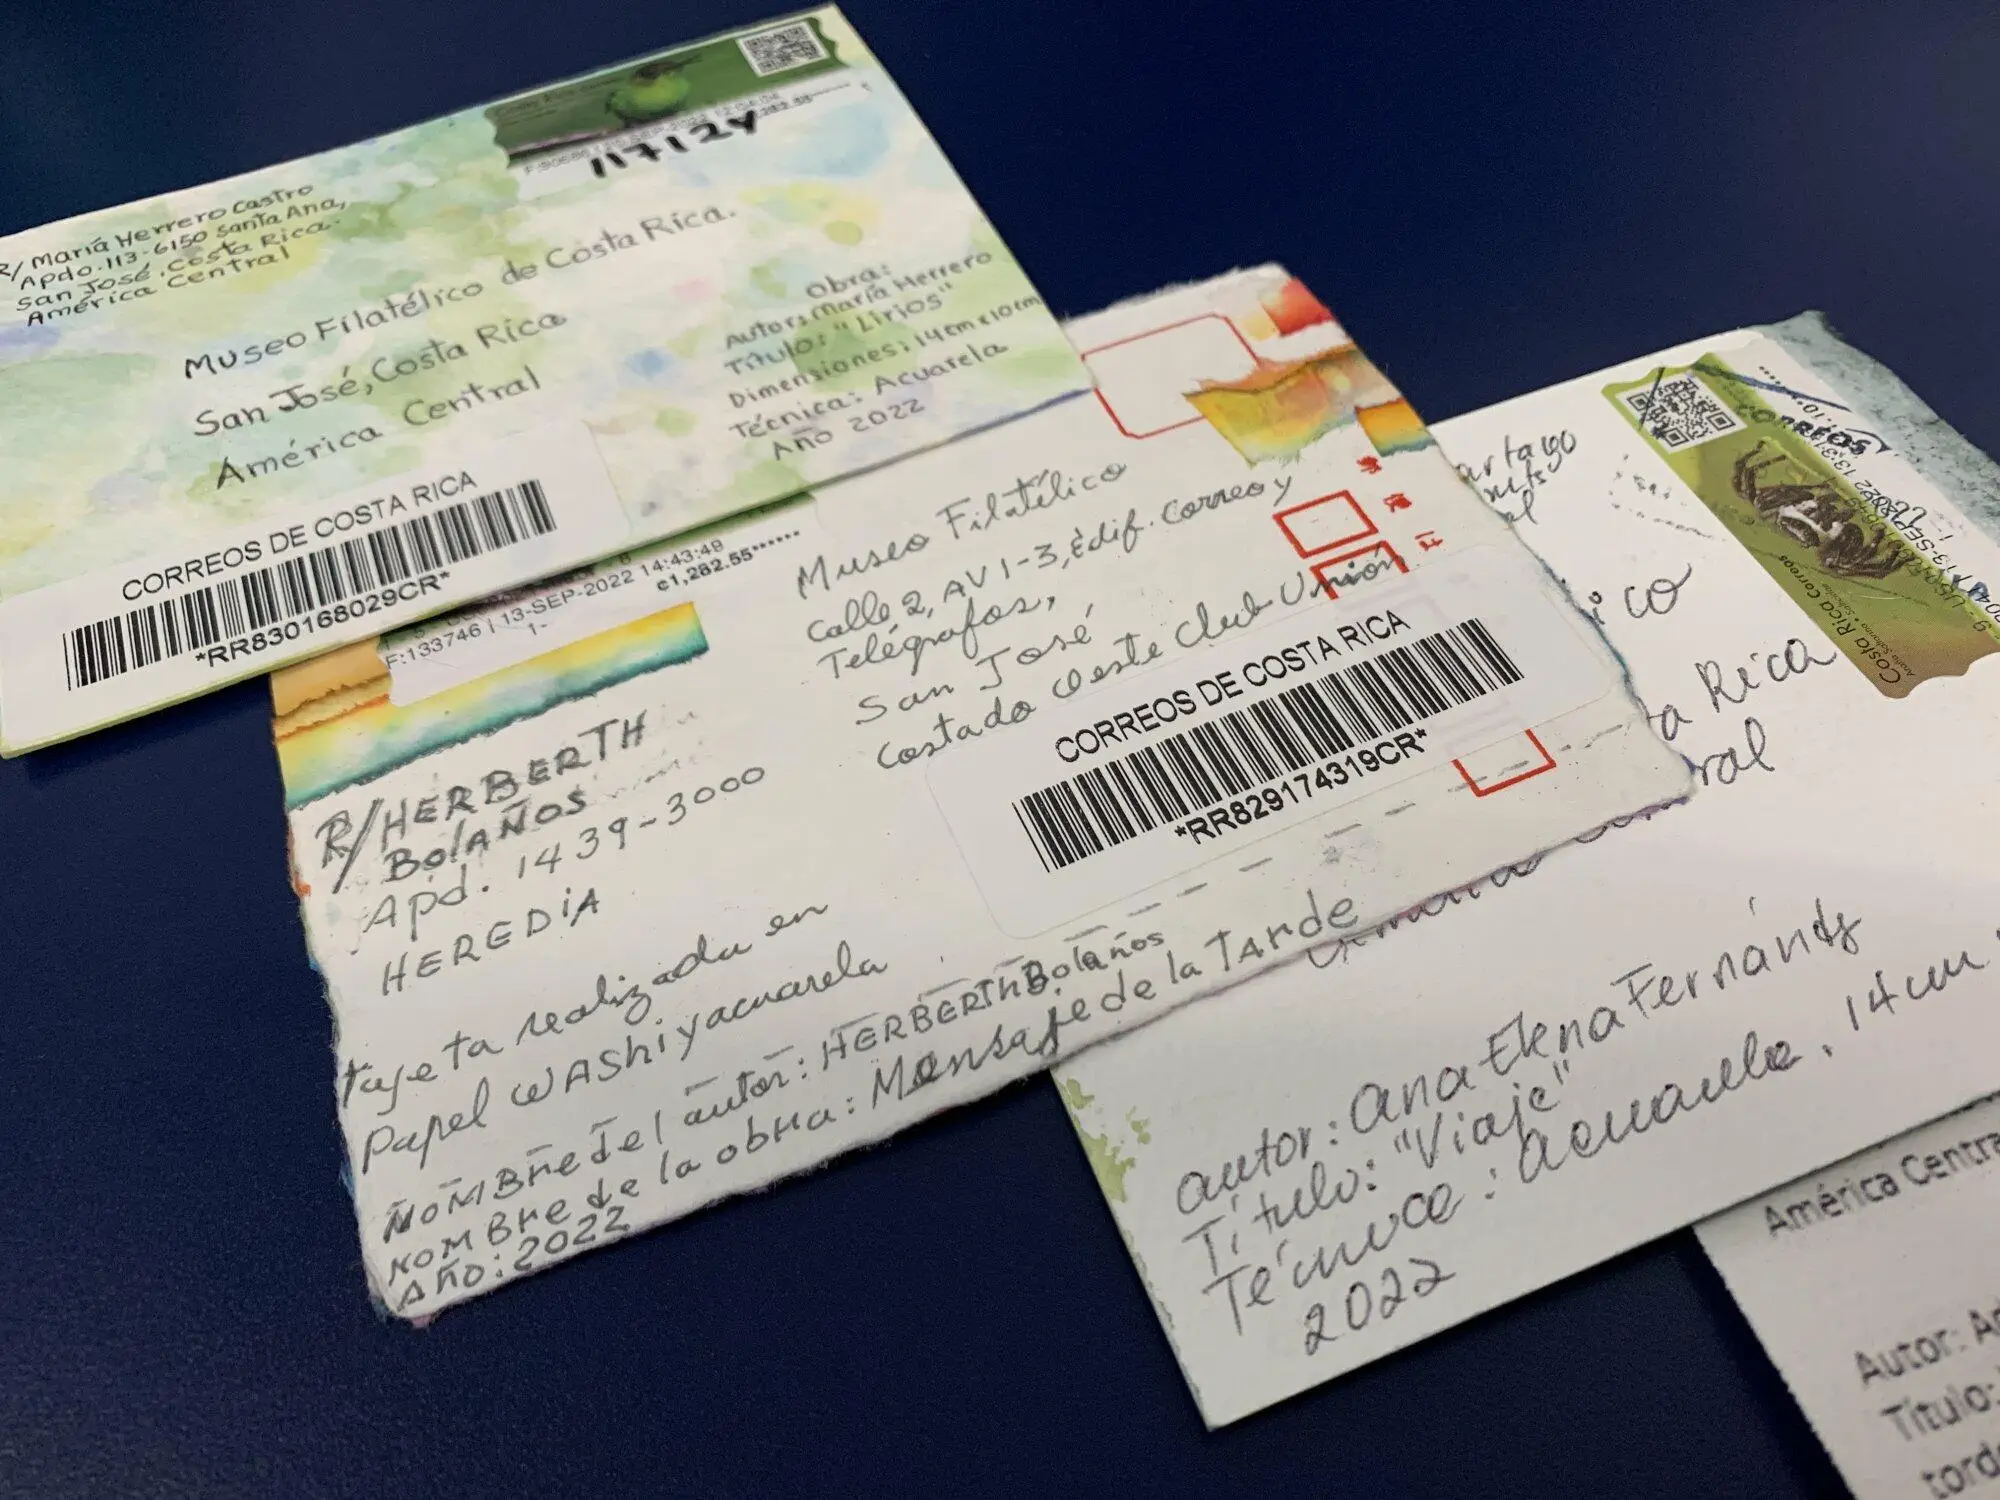 R/ María Herrero Castro
Apdo. 113-6150 Santa Ana,
San José, Costa Rica.
América Central
117124
Museo Filatélico de Costa Rica.
San José, Costa Rica
América Central
Obra:
Autor: María Herrero
Título: "Lirios"
Dimensiones: 14cm x 10cm
Técnica: Acuarela
Año 2022
CORREOS DE COSTA RICA
*RR830168029CR*
F:133746 | 13-SEP-2022 14:43:49
1- ¢1,282.55******
R/HERBERTH
BolAÑOS
Apd. 1439-3000
HEREDiA
Museo Filatélico
Calle 2, AV 1-3, Edif. Correo y
Telégrafos,
San José
Costado Oeste Club Unión
CORREOS DE COSTA RICA
*RR829174319CR*
tarjeta realizada en
Papel WAShi y acuarela
NOMBre del autor: HERBERTH Bolaños
NOMBre de la obra: Mensaje de la TArde
AÑO: 2022
artago
ico
ta Rica
ral
Costa Rica Correos
CORREOS
autor: Ana Elena Fernández
Título: "Viaje"
Técnica: acuarela. 14cm
2022
América Centra
Autor: Ad
Título:
tord